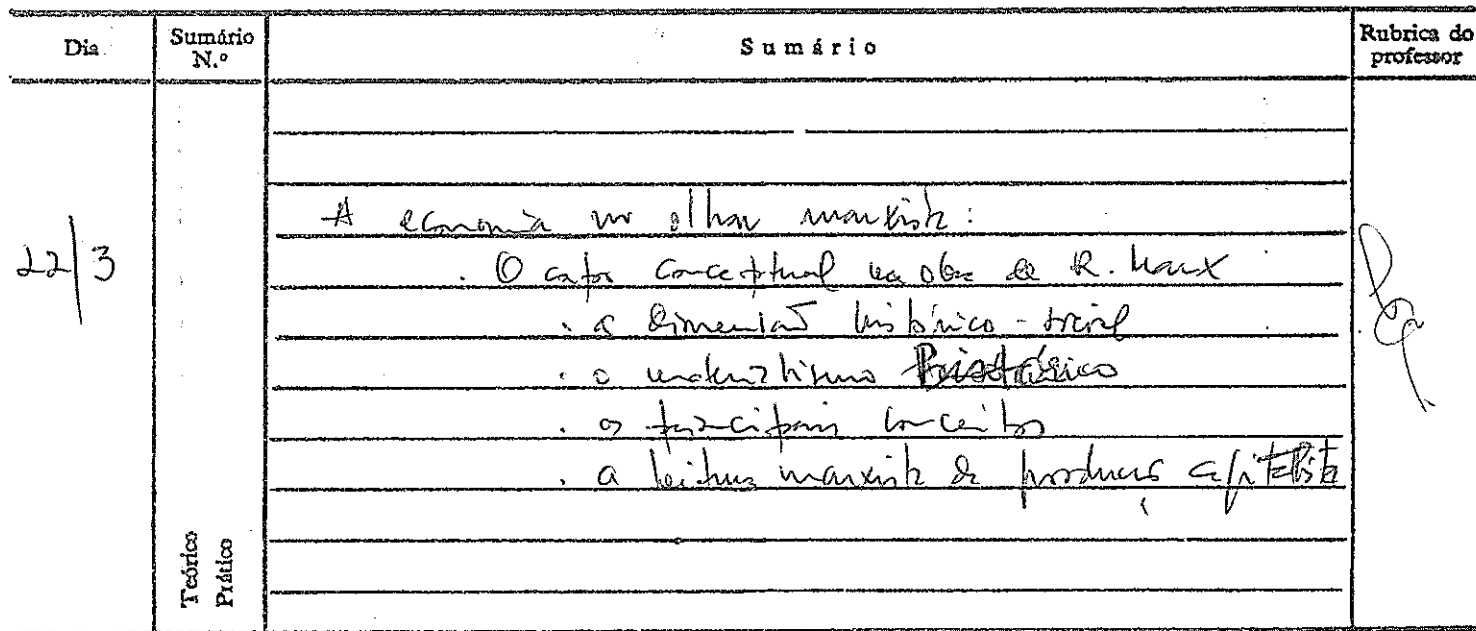 Dia
Sumário N.º
Sumário
Rubrica do professor
22/3
A economia no olhar marxista:
. O corpo conceptual na obra de K. Marx
. a dimensão histórico-social
. o materialismo histórico
. os principais conceitos
. a leitura marxista da produção capitalista
Teórico
Prático